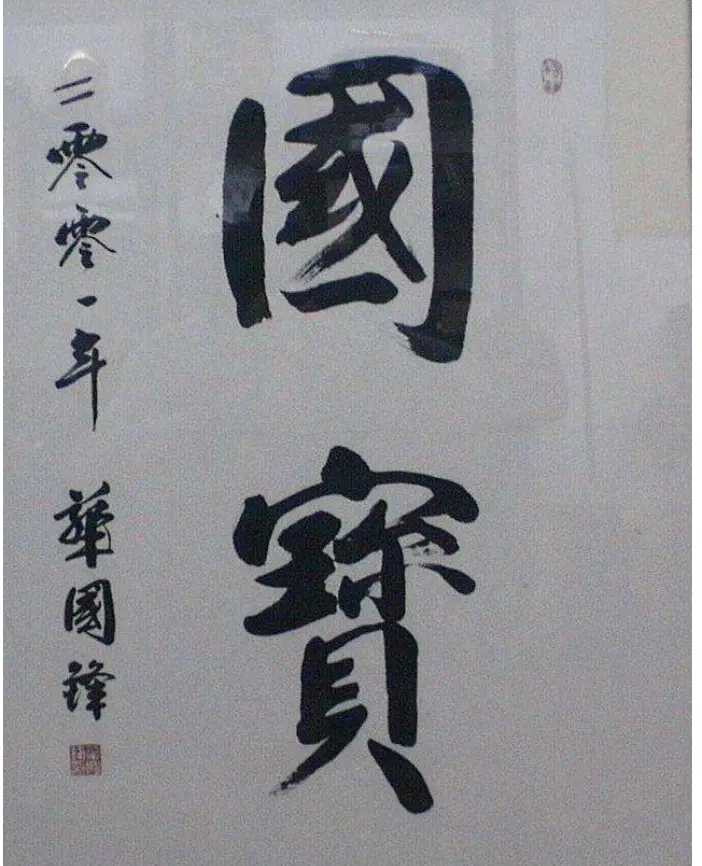 國寶
二零零一年 華國鋒